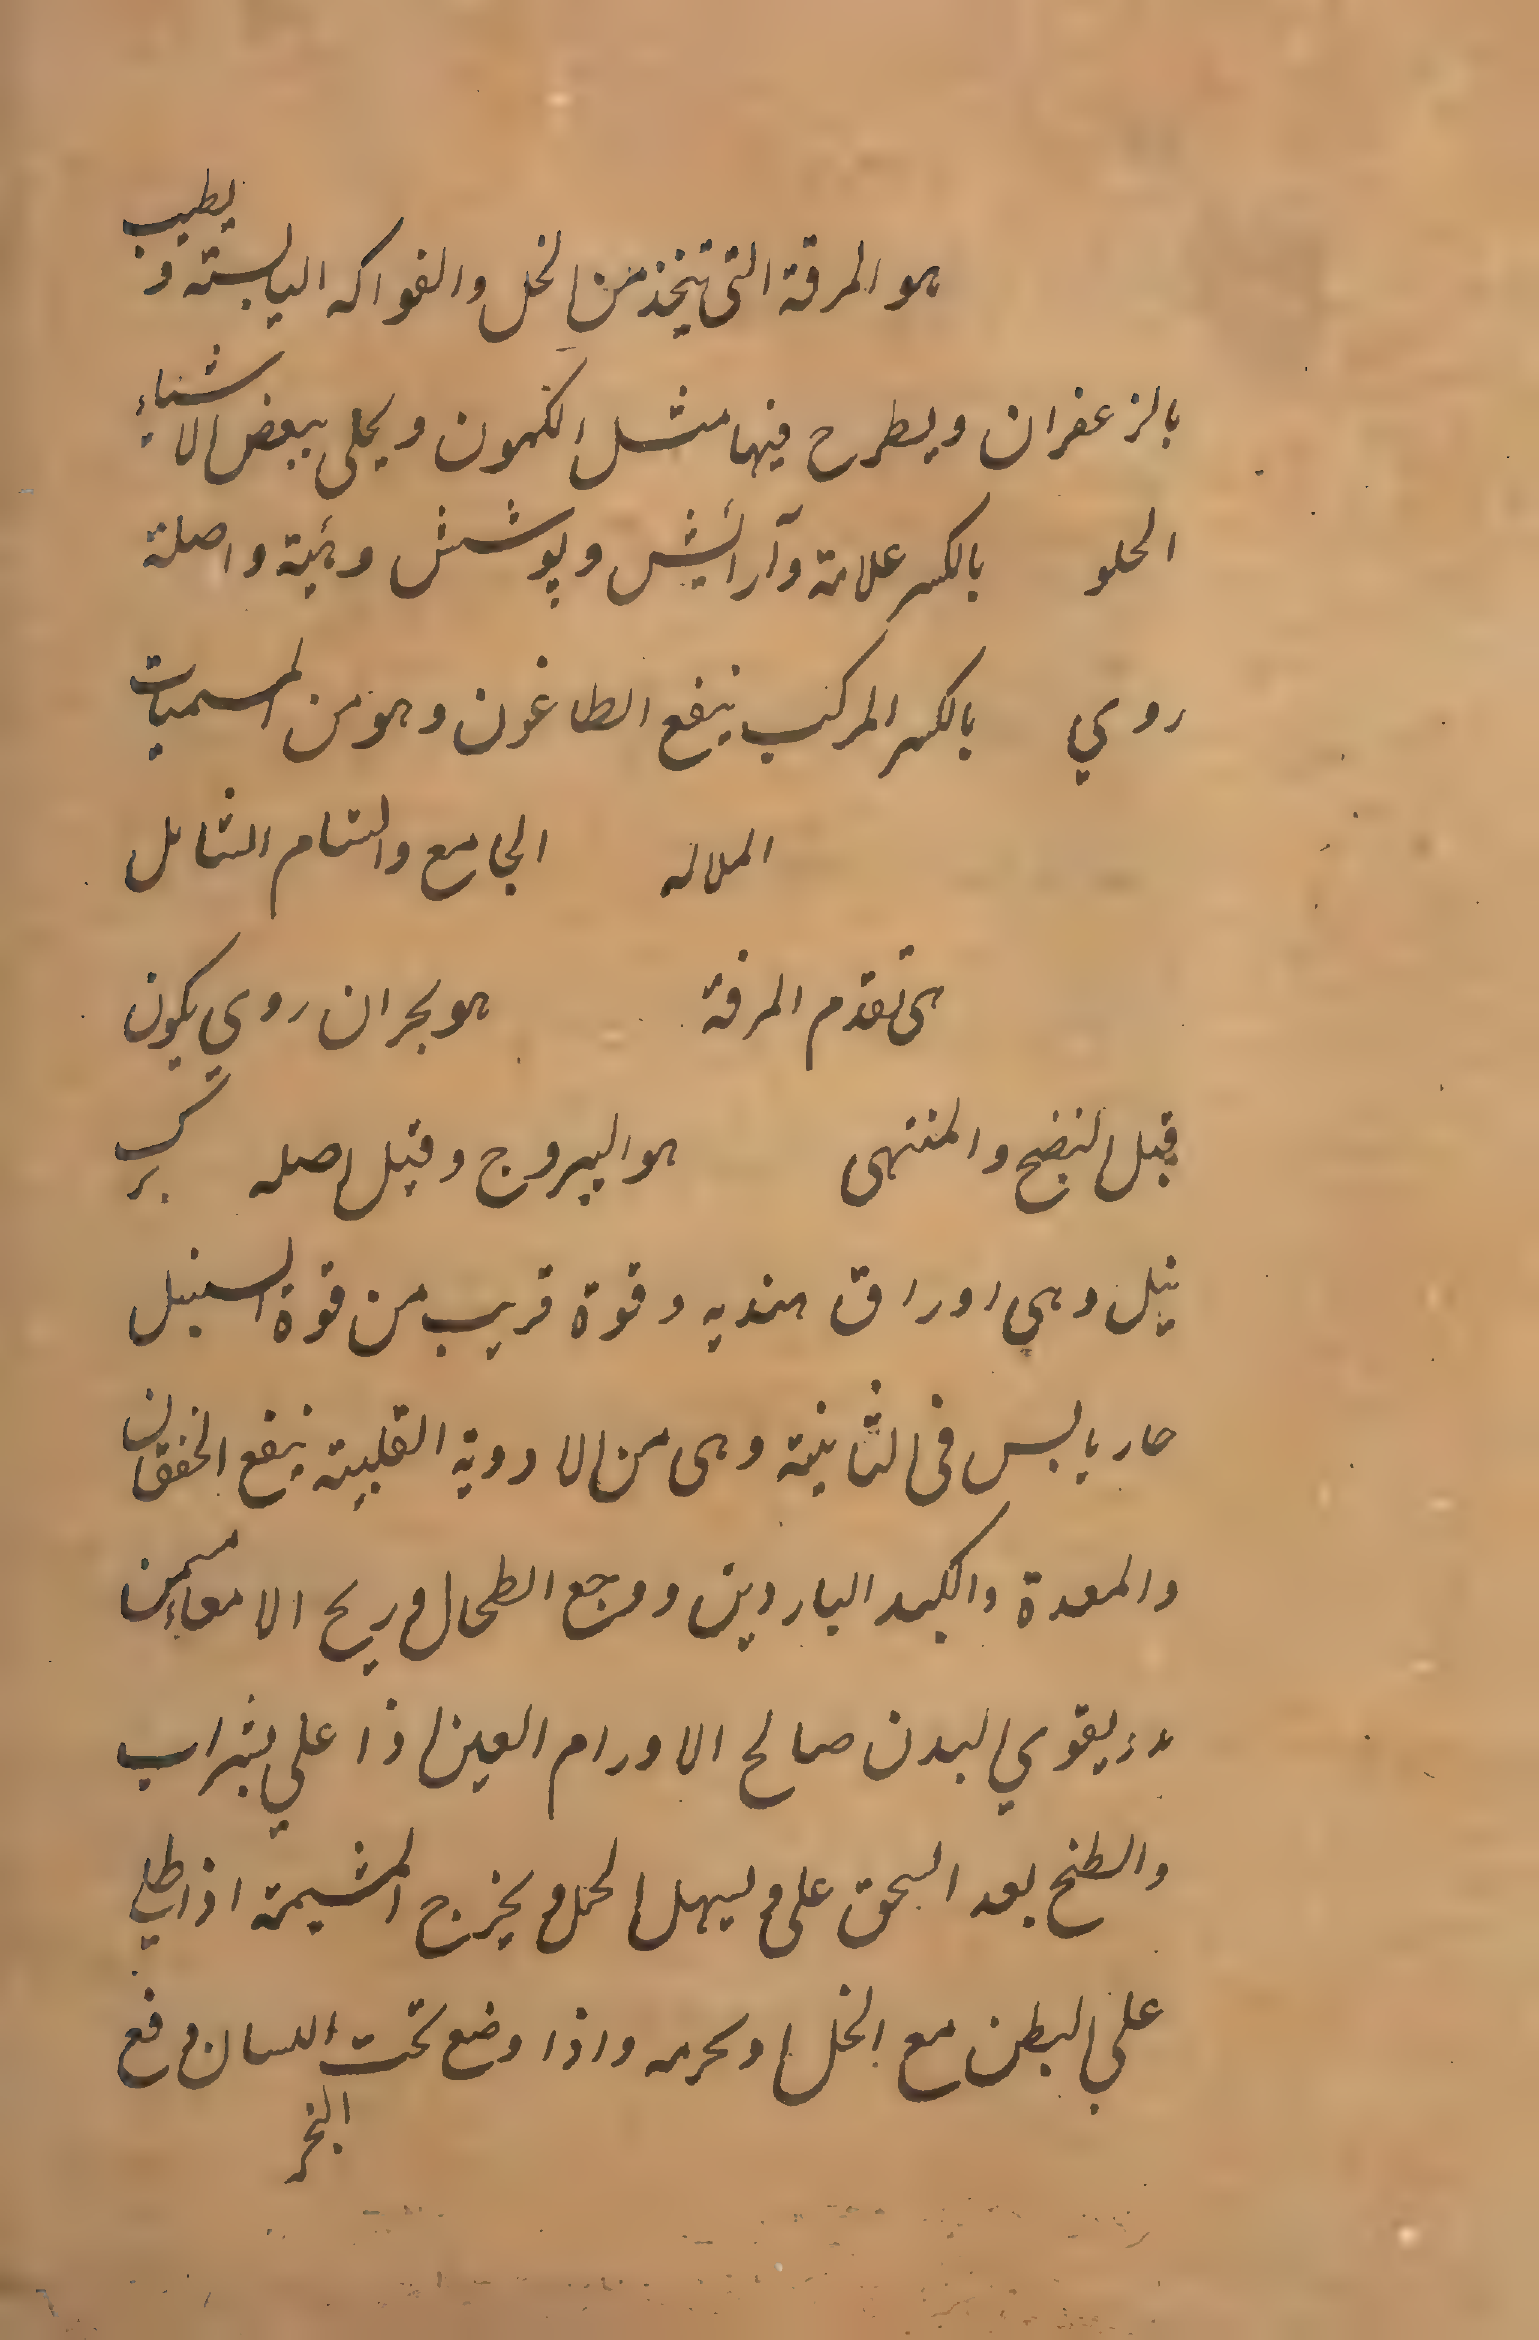 هو المرقة التی تتخذ من الخل والفواكه اليابسته و يطيب
بالزعفران ويطرح فيها مثل الكمون ويحلى ببعض الاشياء
الحلو بالكسر علامة وآرائش وپوشش وهئية واصلة
روي بالكسر المركب ينفع الطاغون وهو من المسميات
الملاله الجامع والتام الشامل
هی تقدم المرفة هو بحران روي يكون
قبل النضج والمنتهی هو اليبروج وقيل اصله برگ
نيل وهي اوراق هنديه وقوة قريب من قوة السنبل
حار يابس فی الثانية وهی من الادوية القلبية ينفع الخفقان
والمعدة والكبد الباردين ووجع الطحال وريح الامعاء
يقوي البدن صالح الاورام العين اذا علي بشراب
والطخ بعد السحق على وليهل الحمل ويخرج المشيمة اذا طلي
علي البطن مع الخل واذا وضع تحت اللسان رفع
البخر